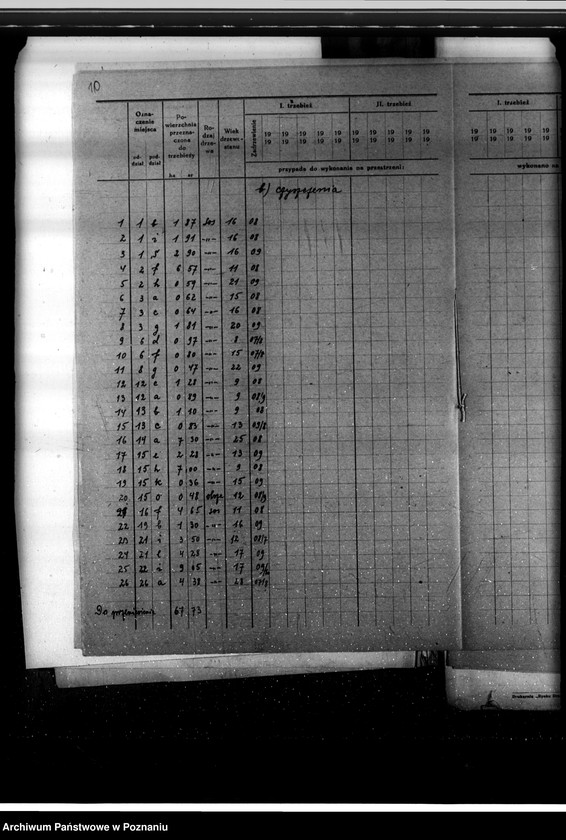 10
I. trzebież II. trzebież I. trzebież
Ozna-
czenie
miejsca
od-
dział
pod-
dział
Po-
wierzchnia
przezna-
czona
do
trzebieży
ha ar
Ro-
dzaj
drze-
wa
Wiek
drzewo-
stanu
Zadrzewienie
19 19 19 19 19 19 19 19 19 19 19 19 19 19 19
19 19 19 19 19 19 19 19 19 19 19 19 19 19 19
przypada do wykonania na przestrzeni: wykonano na
b) czyszczenia
1 1 b 1 87 sos 16 08
2 1 i 1 91 -„- 16 08
3 1 2 90 -„- 16 09
4 2 f 6 57 -„- 11 08
5 2 h 0 59 -„- 21 09
6 3 a 0 62 -„- 15 08
7 3 c 0 64 -„- 16 08
8 3 g 1 81 -„- 20 09
9 6 d 0 97 -„- 8
10 6 f 0 80 -„- 15
11 8 g 0 47 -„- 22 09
12 12 c 1 28 -„- 9 08
13 12 a 0 89 -„- 9 08/9
14 13 b 1 10 -„- 9 08
15 13 c 0 83 -„- 13 09/8
16 14 a 7 30 -„- 25 08
17 15 c 2 28 -„- 13 09
18 15 h 7 00 -„- 9 08
19 15 k 0 36 -„- 15 09
20 15 o 0 48 12 08/9
21 16 f 4 65 sos 11 08
22 19 b 1 30 -„- 16 09
23 21 i 3 50 -„- 12 08/7
24 21 l 4 28 -„- 17 09
25 22 i 9 65 -„- 17
26 26 a 4 38 -„-
Do przeniesienia 67 73
Archiwum Państwowe w Poznaniu